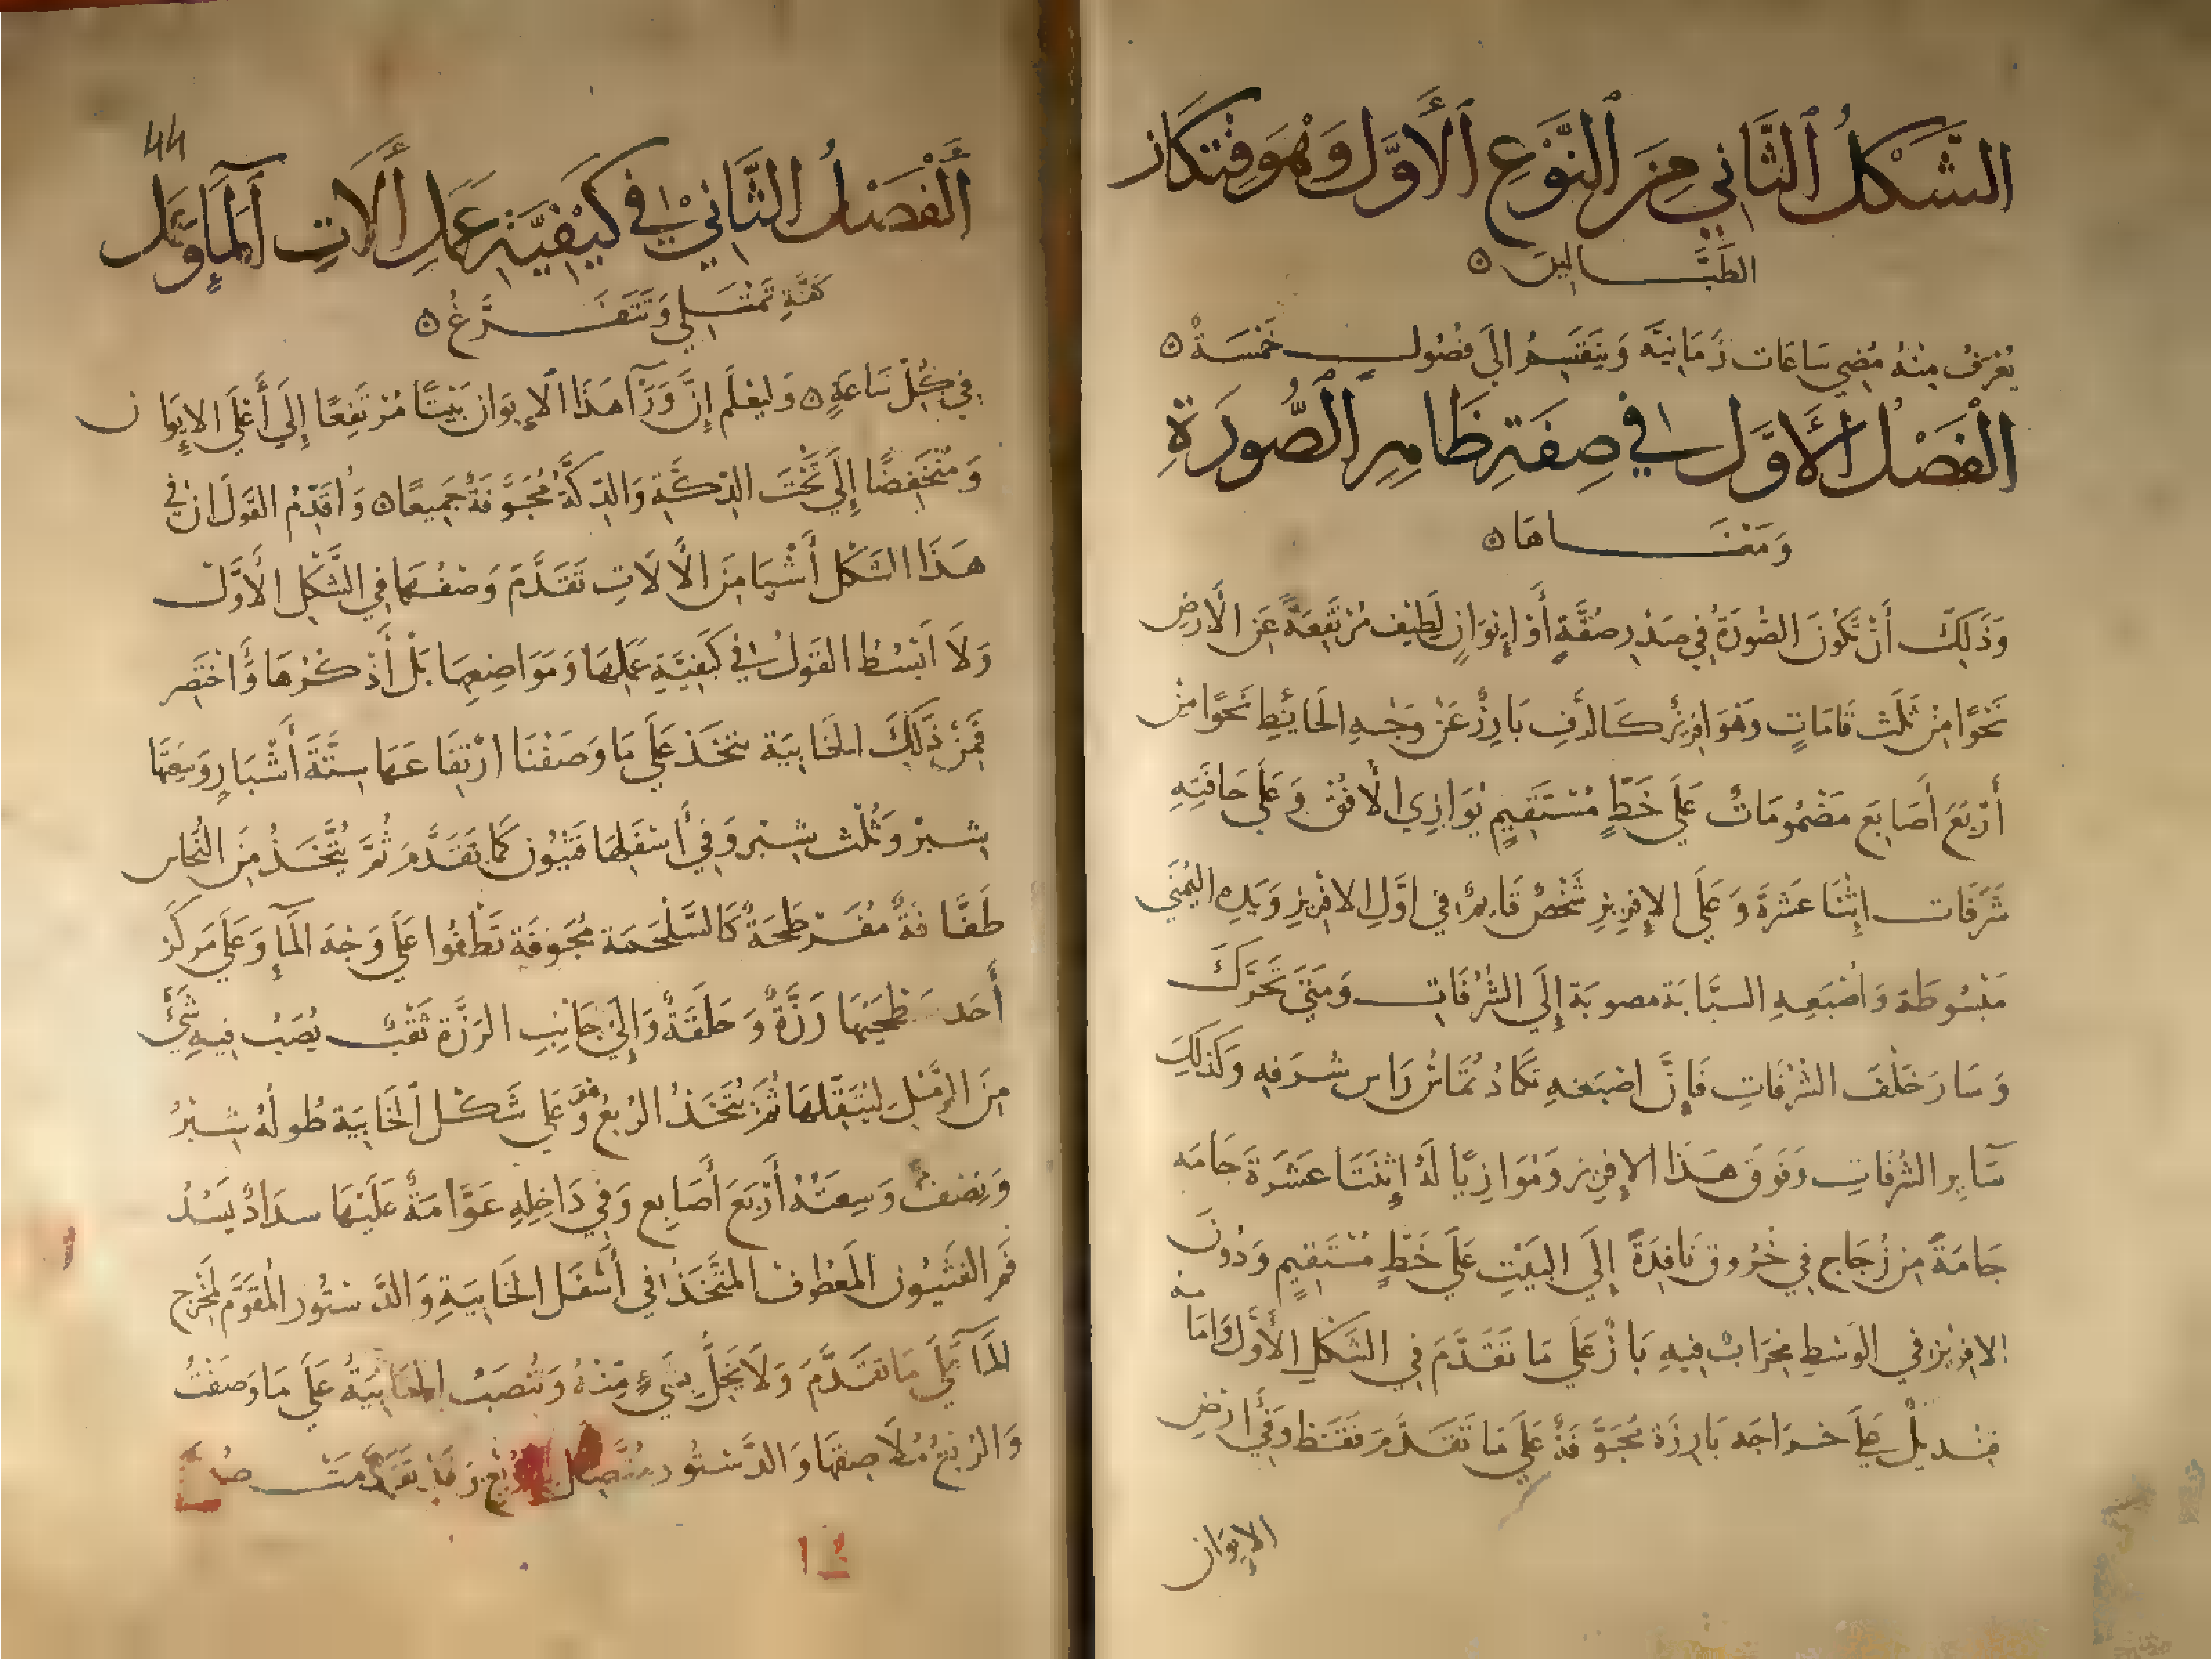 الشَّكلُ الثَّاني مِنَ النَّوْعِ الأَوَّل وَهْوَ فِنْكان
الطَبَّالين
يُعْرَفُ مِنْهُ مُضِي سَاعَات زَمَانِيَّه وَيَنْقَسِمُ الِي فصُول خَمْسَةْ
الْفَصْلُ الأَوَّل في صِفَةِ ظَاهِرِ الصُّورَةِ
وَمَعْنَاهَا
وَذَلِكَ أَنْ تَكُونَ الصُّورَةُ فِي صَدْرِ صُفَّةٍ أَوْ إِيوَانٍ لَطِيْف مُرْتَفِعَةً عَنِ الأَرْضِ
نَحْوًا مِنْ ثَلَث قَامَاتٍ وَهْوَ افرِيزٌ كَالدَّفِ بَارِزٌ عَنْ وَجْهِ الحَائِطِ نَحْوًا مِنْ
أَرْبَعَ أَصَابِعَ مَضْمُومَاتٌ عَلَي خَطٍّ مُسْتَقِيمٍ يُوَازِي الأُفُقْ وَعَلَي حَافَتِهِ
شَرَفَات اثْنَا عَشرَةَ وَعَلَي الإِفرِيزِ شَخْصٌ قَايِمٌ فِي اوَّلِ الافْرِيزِ وَيَدِهِ اليُمْنَي
مَبْسُوطَة وَاصْبَعِهِ السبَّابَة مصوبَة إِلَي الشُرُفَاتِ وَمَتَي تَحَرَّكَ
وَسَارَ خَلْفَ الشُرُفَاتِ فَإِنَّ اصْبَعهِ تَكَادُ تُمَاسُ رَاس شُرفهِ وَكَذلِكَ
سَآيِر الشُرفَاتِ وَفَوقَ هَذَا الإِفرِيزِ وَمُوَازِيًا لَهُ إِثنَتَا عَشَرَةَ جَامَه
جَامَةً مِنْ زُجَاج فِي خُرُوق نَافِذَةً إِلَي البَيْتِ عَلَي خَطٍّ مُسْتَقِيمٍ وَدُونَ
الافرِيزِ في الوَسَطِ مِحْرَابٌ فِيهِ بَازٌ عَلَي مَا تَقَدَّمَ فِي الشَّكْلِ الأَوَّل وَامَامه
قِنديلٌ عَلَي خَراجَه بَارِزَة مُجَوَّفَةٌ عَلَي مَا تَقَدَّمَ فَقَطْ وَفِي ارْضِ
الإيوَان
44
أَلْفَصْلُ الثَّانِي في كَيْفِيَّةِ عَمَلِ أَلَاتِ الْمَآءِ وَعَمَل
كَفَّةٍ تَمْتَلِي وَتَتَفَرَّغُ
فِي كُلِّ سَاعَةٍ وَليُعْلَم إِنَّ وَرَآ هَذَا الإِيوَان بَيْتًا مُرْتَفِعًا إِلَي أَعْلَي الإيوَان
وَمُنْخَفِضًا إِلَي تَحْتَ الدِكَّةِ وَالدِكَّةُ مُجَوَّفَةٌ جَمِيعًا وَاُقَدِّمُ القَوْلَ ان في
هَذَا الشَكْل أَشْيَا مِنَ الأَلَاتِ تَقَدَّمَ وَصْفُهَا فِي الشَّكْلِ الأَوَّلْ
وَلَا اَبْسُطُ القَولُ في كَيْفِيَّةِ عَمَلِهَا وَمَوَاضِعِهَا بَلْ أَذْكُرْهَا وَاَخْتَصِر
فَمِنْ ذَلِكَ الخَابِيَة تتخَذ عَلَي مَا وَصَفْنَا ارْتِفَاعهَا سِتَّةَ أَشْبَارٍ وَسِعَتها
شِبْر وَثُلْث شِبْر وَفِي أَسْفَلِهَا فَثْيُون كَمَا تَقَدَّمَ ثُمَّ يُتَّخَذُ مِنَ النُحَاس
طَفَّافَةٌ مُفَرْطَحَةٌ كَالسَّلْجَمَة مُجَوفَة تَطْفُوا عَلَي وَجْهَ المَآءِ وَعَلَي مَركَز
أَحَد سَطْحَيْهَا رَزَّةٌ وَحَلْقَةٌ وَإِلَي جَانِبِ الرَزَّة ثُقْبٌ يُصَبُ فِيهِ شَيْءٌ
مِنَ الرَّمْلِ لِيُثَقِّلهَا ثُمَّ يُتَّخَذُ الرُبعُ وَهْوَ عَلي شَكْل الخَابِيَة طُولهُ شِبْرٌ
وَنِصْفٌ وَسِعَتُهُ أَرْبَعَ أَصَابِع وَفِي دَاخِلِهِ عَوَّامَةٌ عَلَيْهَا سدَادٌ يَسُدُ
فَم الفَثْيُون المَعْطُوف المُتَّخَذُ في أَسْفَلِ الخَابِيَةِ وَالدَّسْتُور المُقَوَّم لِمَخْرَج
المَآ عَلَي مَا تَقَدَّمَ وَلَا يُخِلُّ بِشَيْءٍ مِنْهُ وَتُنْصَبُ الخَابِيَةُ عَلَي مَا وَصَفْتُ
وَالرُبْعُ مُلَاصِقهَا وَالدَّسْتُور مُتَّصِل بِالرُبْعِ وَقَدْ تَقَدَّمَتْ